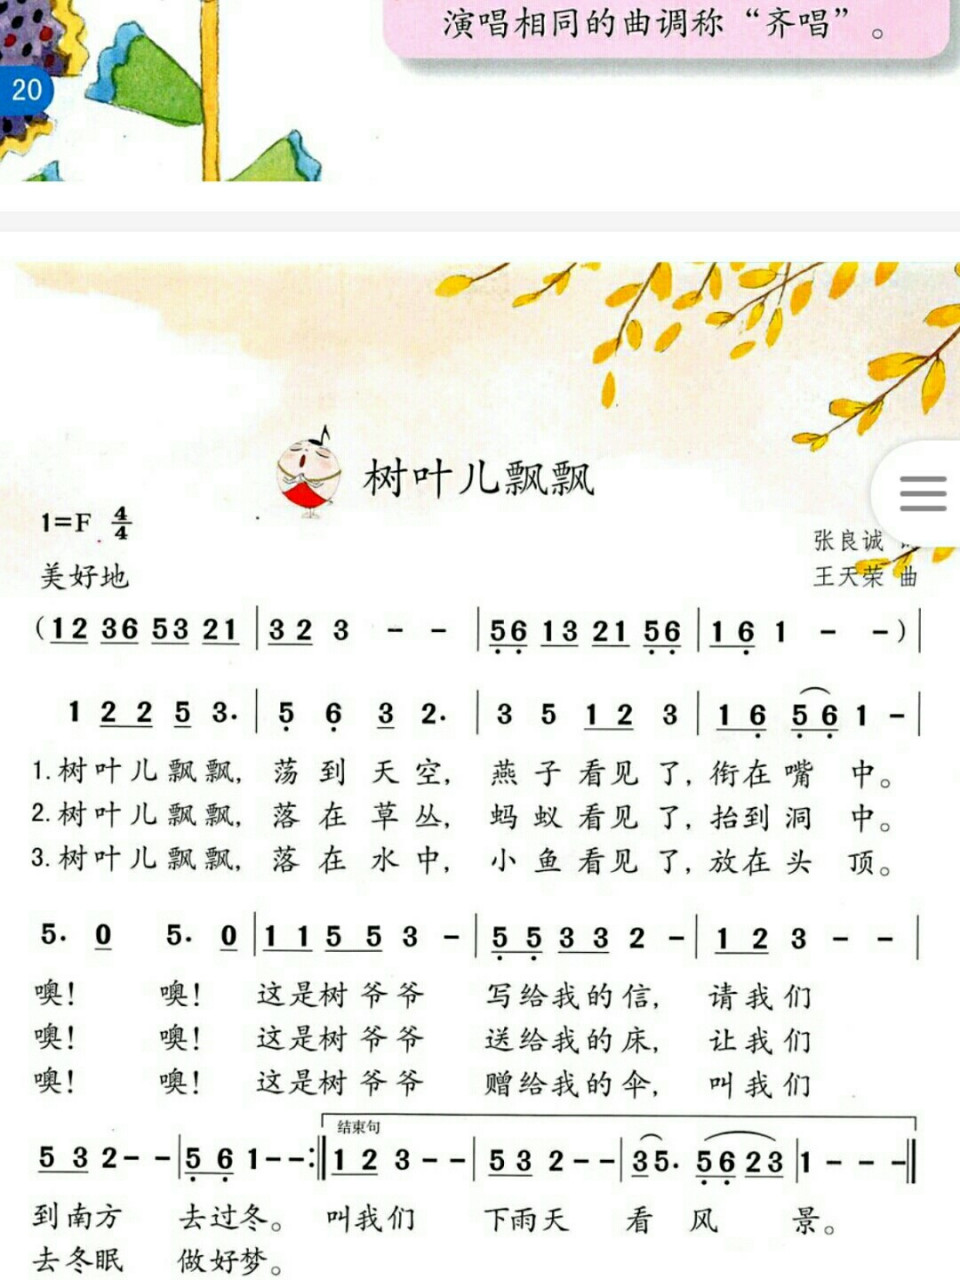 演唱相同的曲调称“齐唱”。
20
树叶儿飘飘
1=F 4/4
美好地
张良诚
王天荣 曲
(12 36 53 21 | 3 2 3 - - | 56 13 21 56 | 1 6 1 - -) |
1 2 2 5 3· | 5 6 3 2· | 3 5 1 2 3 | 1 6 5 6 1 - |
1.树叶儿飘飘, 荡到天空, 燕子看见了, 衔在嘴中。
2.树叶儿飘飘, 落在草丛, 蚂蚁看见了, 抬到洞中。
3.树叶儿飘飘, 落在水中, 小鱼看见了, 放在头顶。
5· 0 5· 0 | 1 1 5 5 3 - | 5 5 3 3 2 - | 1 2 3 - - |
噢! 噢! 这是树爷爷 写给我的信, 请我们
噢! 噢! 这是树爷爷 送给我的床, 让我们
噢! 噢! 这是树爷爷 赠给我的伞, 叫我们
结束句
5 3 2 - - | 5 6 1 - - :‖ 1 2 3 - - | 5 3 2 - - | 3 5· 5 6 2 3 | 1 - - - ‖
到南方 去过冬。 叫我们 下雨天 看风景。
去冬眠 做好梦。